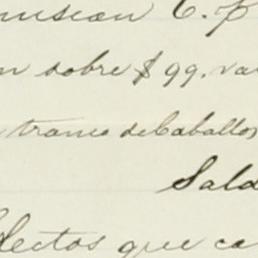 C. p
n sobre $99. va
tranco de Caballos
Sald
fectos que ca